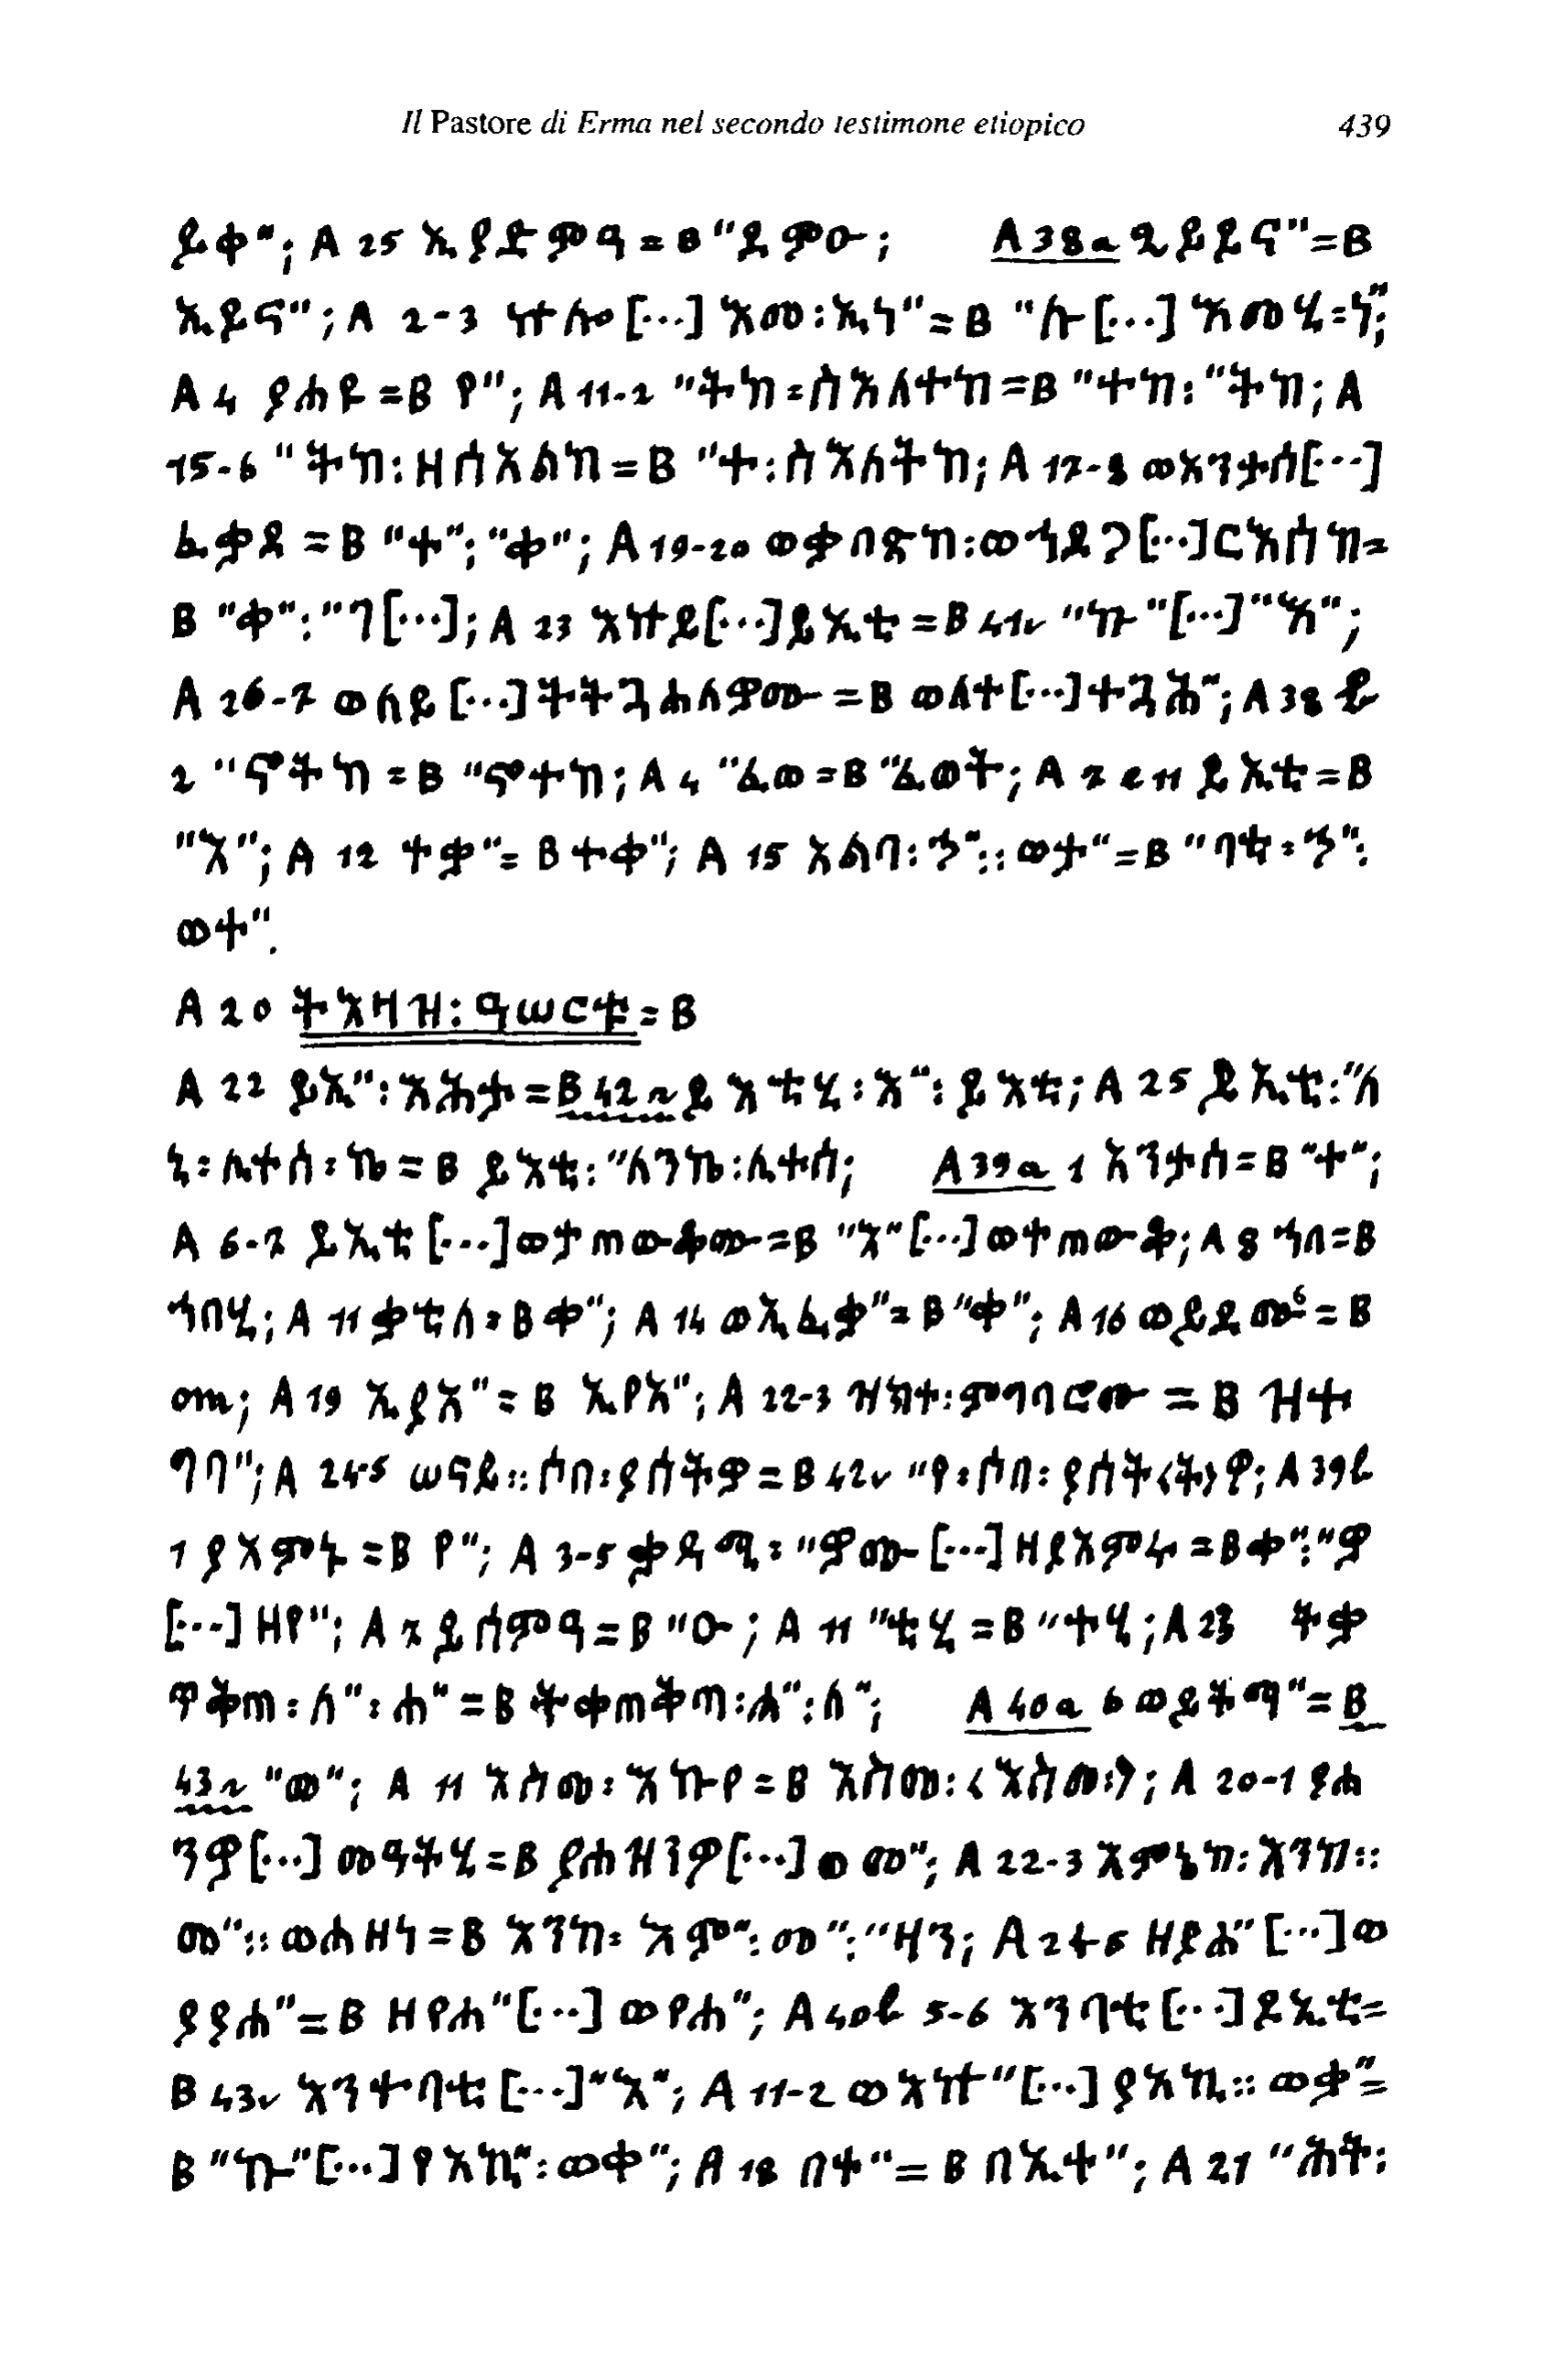 Il Pastore di Erma nel secondo testimone etiopico 439
ይቀ"; A 25 ኢያድምዓ = B "ደምዑ; A 38a ጊይይና" = B
ኢይና"; A 2-3 ኵሎ [...] እመ፡ኢነ" = B "ሉ [...] እመሂ፡ነ";
A 4 ያሐዩ = B የ"; A 11-2 "ትከ፡ስእለተከ = B "ተከ፡"ትከ; A
15-6 "ትከ፡ዘሰአልከ = B "ተ፡ስእለትከ; A 17-8 ወእንታሰ[...]
ፈቃደ = B "ተ"; "ቀ"; A 19-20 ወቃበጽከ፡ወኀደጋ[...]ርእሰከ=
B "ቀ"፡"ገ[...]; A 23 እዅይ[...]ይእቲ = B 41v "ኩ"[...]"እ";
A 26-7 ወለይ [...]ትትጋሐለዎሙ = B ወለተ[...]+ጋሕ"; A 38b
2 "ኖትከ = B "ኖተከ; A 4 "ፈወ = B "ፈወት; A 7 e 11 ይእቲ = B
"እ"; A 12 ተቃ" = B ተቀ"; A 15 እልበ፡ኅ"።ወታ" = B "ባቲ፡ኅ"፡
ወተ".
A 20 ትእዛዝ፡ዓሠርቱ = B
A 22 ይእ"፡እሕታ = B 42r ይእቲሂ፡እ"፡ይእቲ; A 25 ይእቲ፡"ለ
ኒ፡ሊተሰ፡ኬ = B ይእቲ፡"ለንኬ፡ሊተሰ; A 39a 1 እንታሰ = B "ተ";
A 6-7 ይእቲ [...]ወታጠውቆሙ = B "እ"[...]ወተጠውቆ; A 8 ኀበ = B
ኀበሂ; A 11 ቃቲለ = B ቀ"; A 14 ወኢፈቃ" = B "ቀ"; A 16 ወይደመ⁶ = B
om; A 19 ኢያእ" = B ኢየእ"; A 22-3 ዝክተ፡ምግባሮሙ = B ዝተ
ግበ"; A 24-5 ሠናይ።ሰበ፡ያስትዋ = B 42v "የ፡ሰበ፡ያሰት<ት>ዋ; A 39b
1 ያአምኑ = B የ"; A 3-5 ቃዳሚ፡"ዎሙ [...] ዘያአምኑ = B ቀ"፡"ዎ
[...] ዘየ"; A 7 ይሰምዓ = B "ዑ; A 11 "ቲሂ = B "ተሂ; A 23 ትቃ
ዋቅጠ፡ለ"፡ሐ" = B ትቀጠቅጠ፡ሐ"፡ለ"; A 40a 6 ወይትማ" = B
43r "መ"; A 11 እስመ፡እኩየ = B እስመ፡<እስመ፡>; A 20-1 ያሐ
ንዎ[...] መዓትሂ = B ያሐዝንዎ[...] ወ መ"; A 22-3 እምኔከ፡እንከ።
መ"።ወሐዘነ = B እንከ፡እም"፡መ"፡"ዘን; A 24-5 ዘያሐ" [...]ወ
ያያሐ" = B ዘየሐ"[...] ወየሐ"; A 40b 5-6 እንባቲ [...]ይእቲ =
B 43v እንተባቲ [...]"እ"; A 11-2 ወእዅ"[...] ያአኪ።ወቃ" =
B "ኩ"[...] የአኪ"፡ወቀ"; A 18 በተ" = B በኢተ"; A 21 "ሕት፡